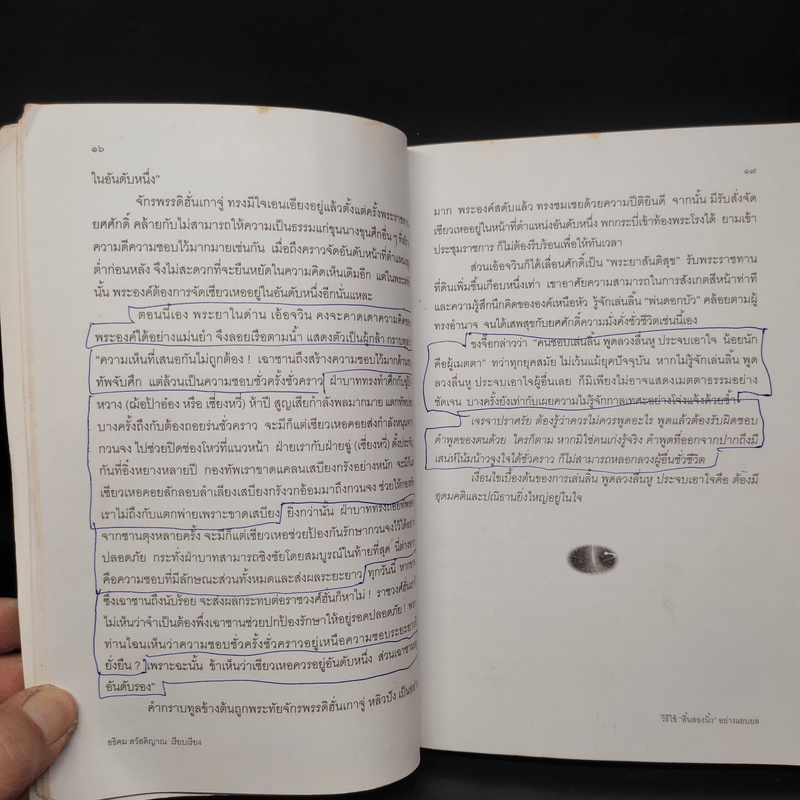 ๑๖
ในอันดับหนึ่ง"
จักรพรรดิฮั่นเกาจู่ ทรงมีใจเอนเอียงอยู่แล้วตั้งแต่ครั้งพระราชทาน
ยศศักดิ์ คล้ายกับไม่สามารถให้ความเป็นธรรมแก่ขุนนางขุนศึกอื่นๆ ที่สร้าง
ความดีความชอบไว้มากมายเช่นกัน เมื่อถึงคราวจัดอันดับหน้าที่ตำแหน่งสูง
ต่ำก่อนหลัง จึงไม่สะดวกที่จะยืนหยัดในความคิดเห็นเดิมอีก แต่ในพระทัย
นั้น พระองค์ต้องการจัดเซียวเหออยู่ในอันดับหนึ่งอีกนั่นแหละ
ตอนนี้เอง พระยาในด่าน เอ้อจวิน คงจะคาดเดาความคิดของ
พระองค์ได้อย่างแม่นยำ จึงลอยเรือตามน้ำ แสดงตัวเป็นผู้กล้า กราบทูลว่า
"ความเห็นที่เสนอกันไม่ถูกต้อง ! เฉาชานถึงสร้างความชอบไว้มากด้าน
ทัพจับศึก แต่ล้วนเป็นความชอบชั่วครั้งชั่วคราว ฝ่าบาททรงทำศึกกับฌู้ป้า
หวาง (ฌ้อปาอ๋อง หรือ เซี่ยงหวี่) ห้าปี สูญเสียกำลังพลมากมาย แตกทัพ
บางครั้งถึงกับต้องถอยร่นชั่วคราว จะมีก็แต่เซียวเหอคอยส่งกำลังหนุนจาก
กวนจง ไปช่วยปิดช่องโหว่ที่แนวหน้า ฝ่ายเรากับฝ่ายฉู่ (เซี่ยงหวี่) ตั้งประจัญ
กันที่อิ๋งหยางหลายปี กองทัพเราขาดแคลนเสบียงกรังอย่างหนัก จะมีก็แต่
เซียวเหอคอยลักลอบลำเลียงเสบียงกรังวกอ้อมมาถึงกวนจง ช่วยให้กองทัพ
เราไม่ถึงกับแตกพ่ายเพราะขาดเสบียง ยิ่งกว่านั้น ฝ่าบาททรงถอยทัพออก
จากซานตุงหลายครั้ง จะมีก็แต่เซียวเหอช่วยป้องกันรักษากวนจงไว้ได้อย่าง
ปลอดภัย กระทั่งฝ่าบาทสามารถชิงชัยโดยสมบูรณ์ในท้ายที่สุด นี่ต่างหาก
คือความชอบที่มีลักษณะส่วนทั้งหมดและส่งผลระยะยาว ทุกวันนี้ หากขาด
ซึ่งเฉาชานถึงนับร้อย จะส่งผลกระทบต่อราชวงศ์ฮั่นก็หาไม่ ! ราชวงศ์ฮั่นเรา
ไม่เห็นว่าจำเป็นต้องพึ่งเฉาชานช่วยปกป้องรักษาให้อยู่รอดปลอดภัย !
ท่านไฉนเห็นว่าความชอบชั่วครั้งชั่วคราวอยู่เหนือความชอบระยะยาวที่
ยั่งยืน ? เพราะฉะนั้น ข้าเห็นว่าเซียวเหอควรอยู่อันดับหนึ่ง ส่วนเฉาชานอยู่
อันดับรอง"
คำกราบทูลข้างต้นถูกพระทัยจักรพรรดิฮั่นเกาจู่ หลิวปัง เป็นอย่าง
อธิคม สวัสดิญาณ เรียบเรียง
๑๗
มาก พระองค์สดับแล้ว ทรงชมเชยด้วยความปีติยินดี จากนั้น มีรับสั่งจัด
เซียวเหออยู่ในหน้าที่ตำแหน่งอันดับหนึ่ง พกกระบี่เข้าท้องพระโรงได้ ยามเข้า
ประชุมราชการ ก็ไม่ต้องรีบร้อนเพื่อให้ทันเวลา
ส่วนเอ้อจวินก็ได้เลื่อนศักดิ์เป็น "พระยาสันติสุข" รับพระราชทาน
ที่ดินเพิ่มขึ้นเกือบหนึ่งเท่า เขาอาศัยความสามารถในการสังเกตสีหน้าท่าที
และความรู้สึกนึกคิดของคนเหนือหัว รู้จักเล่นลิ้น "พ่นดอกบัว" คล้อยตามผู้
ทรงอำนาจ จนได้เสพสุขกับยศศักดิ์ความมั่งคั่งชั่วชีวิตเช่นนี้เอง
ขงจื๊อกล่าวว่า "คนชอบเล่นลิ้น พูดลวงลื่นหู ประจบเอาใจ น้อยนัก
คือผู้เมตตา" ทว่าทุกยุคสมัย ไม่เว้นแม้ยุคปัจจุบัน หากไม่รู้จักเล่นลิ้น พูด
ลวงลื่นหู ประจบเอาใจผู้อื่นเลย ก็มิเพียงไม่อาจแสดงเมตตาธรรมอย่าง
ชัดเจน บางครั้งยังเท่ากับเผยความไม่รู้จักกาลเทศะอย่างโจ่งแจ้งด้วยซ้ำ
เจรจาปราศรัย ต้องรู้ว่าควรไม่ควรพูดอะไร พูดแล้วต้องรับผิดชอบ
คำพูดของตนด้วย ใครก็ตาม หากมิใช่คนเก่งรู้จริง คำพูดที่ออกจากปากถึงมี
เสน่ห์โน้มน้าวจูงใจได้ชั่วคราว ก็ไม่สามารถหลอกลวงผู้อื่นชั่วชีวิต
เงื่อนไขเบื้องต้นของการเล่นลิ้น พูดลวงลื่นหู ประจบเอาใจคือ ต้องมี
อุดมคติและปณิธานยิ่งใหญ่อยู่ในใจ
วิธีใช้ "ลิ้นสองนิ้ว" อย่างแยบยล